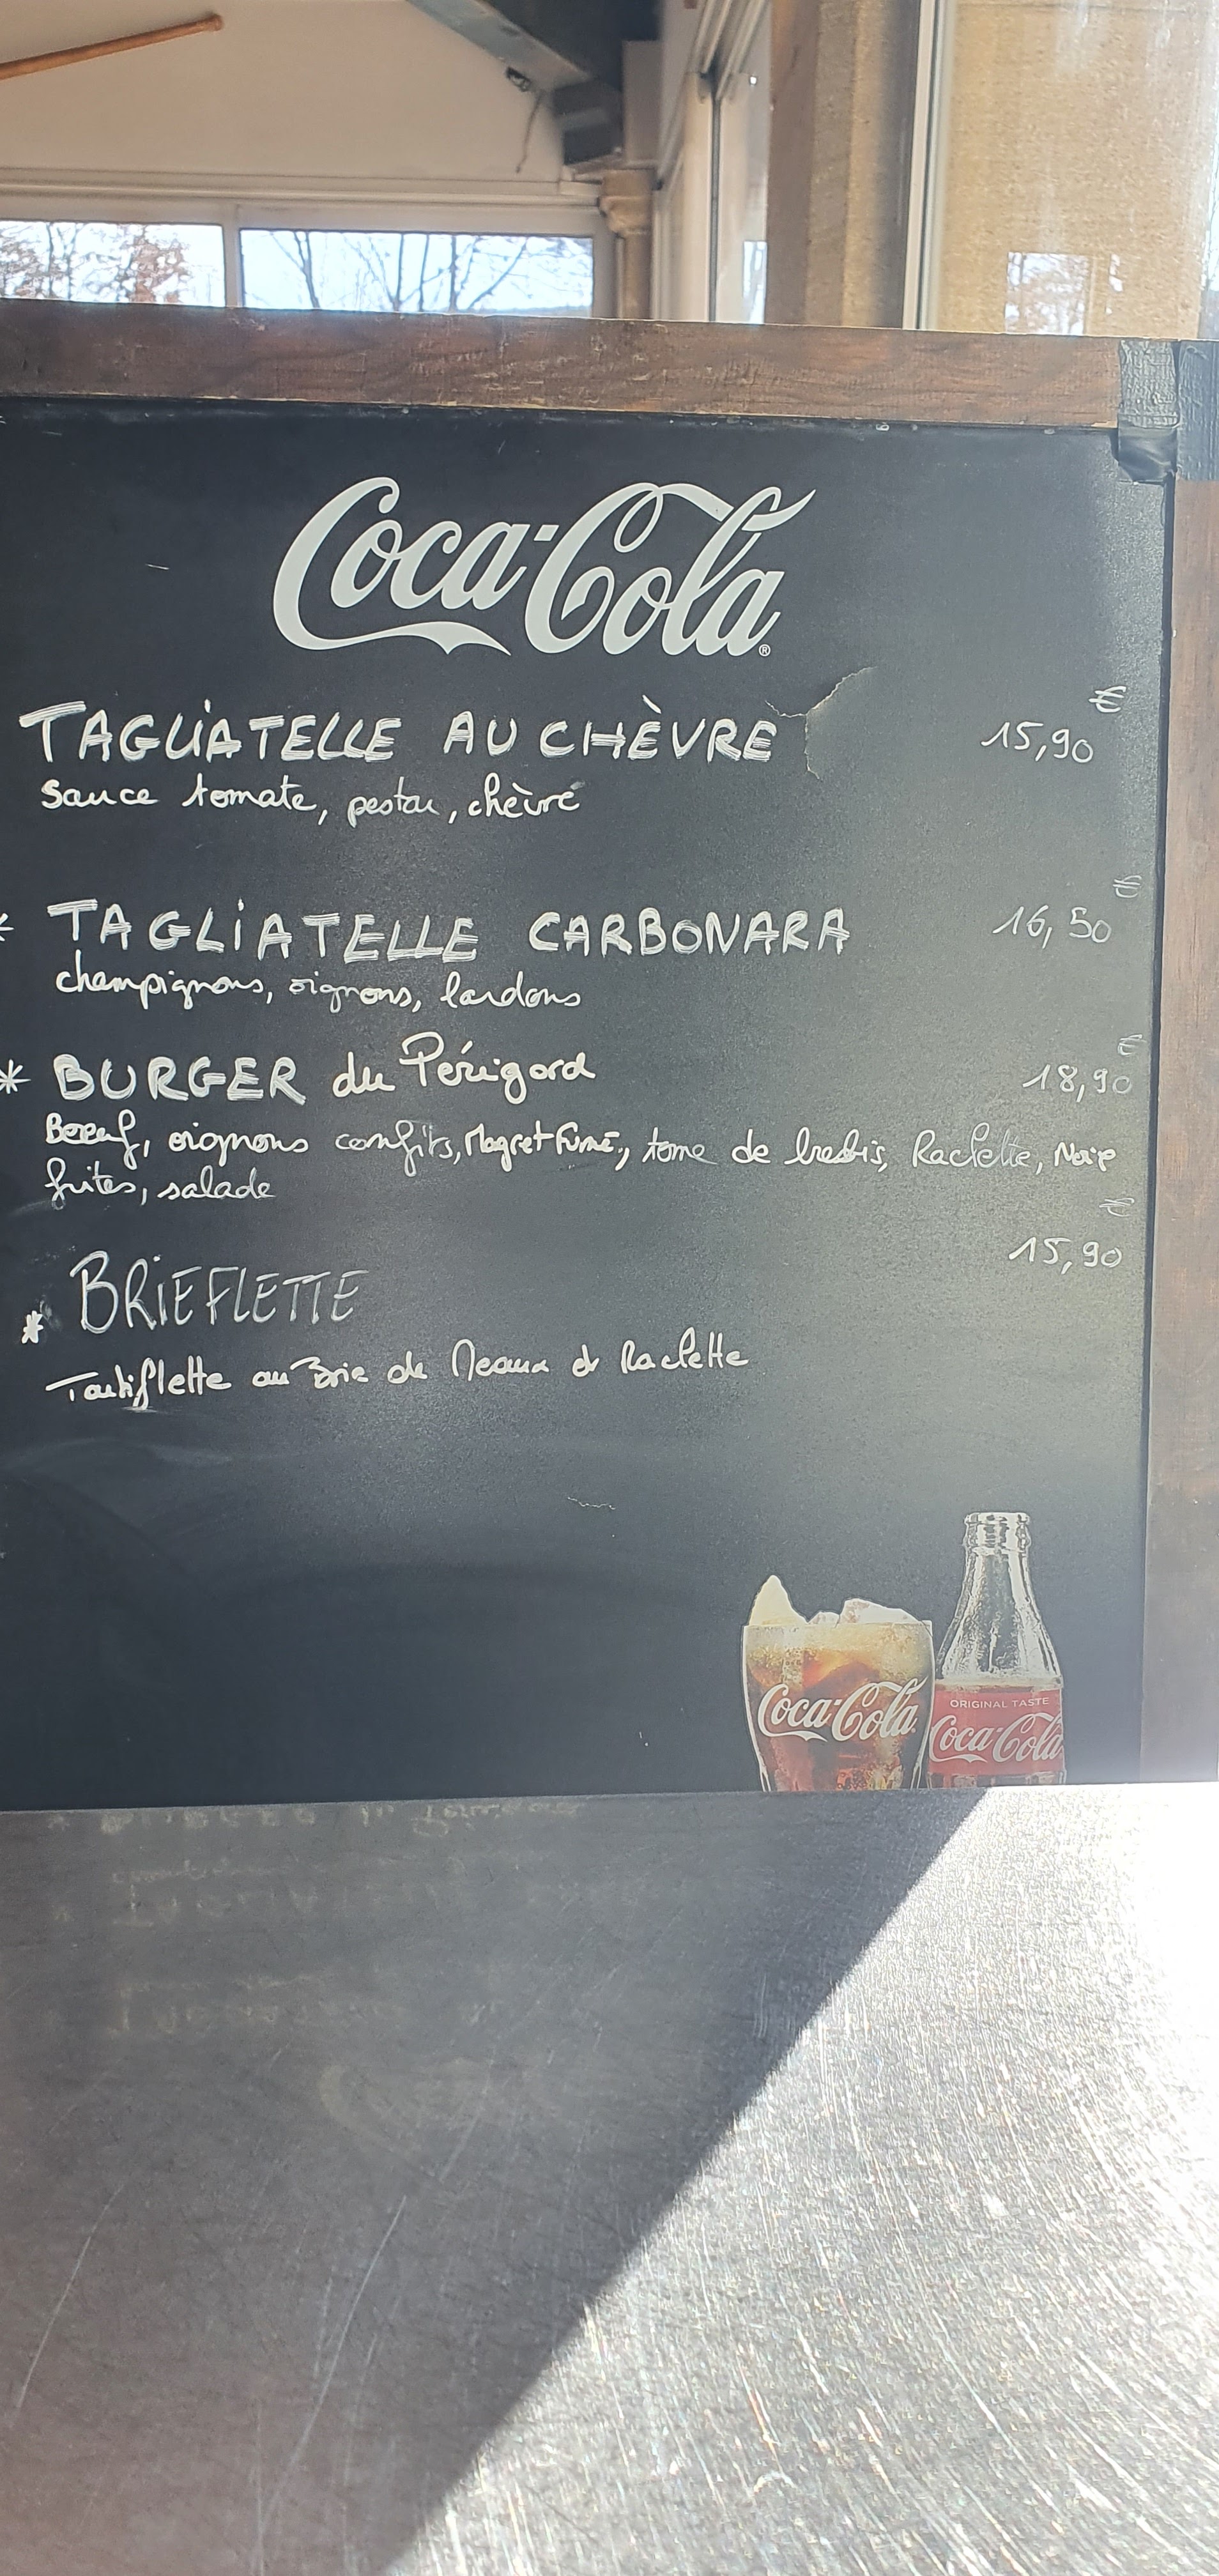 Coca-Cola®
TAGLIATELLE AU CHÈVRE 15,90 €
sauce tomate, pestou, chèvre
* TAGLIATELLE CARBONARA 16,50 €
champignons, oignons, lardons
* BURGER du Périgord 18,90 €
Boeuf, oignons confits, Magret Fumé, tome de brebis, Raclette, Noix
frites, salade
* BRIEFLETTE 15,90 €
Tartiflette au Brie de Meaux et Raclette
Coca-Cola
ORIGINAL TASTE
Coca-Cola